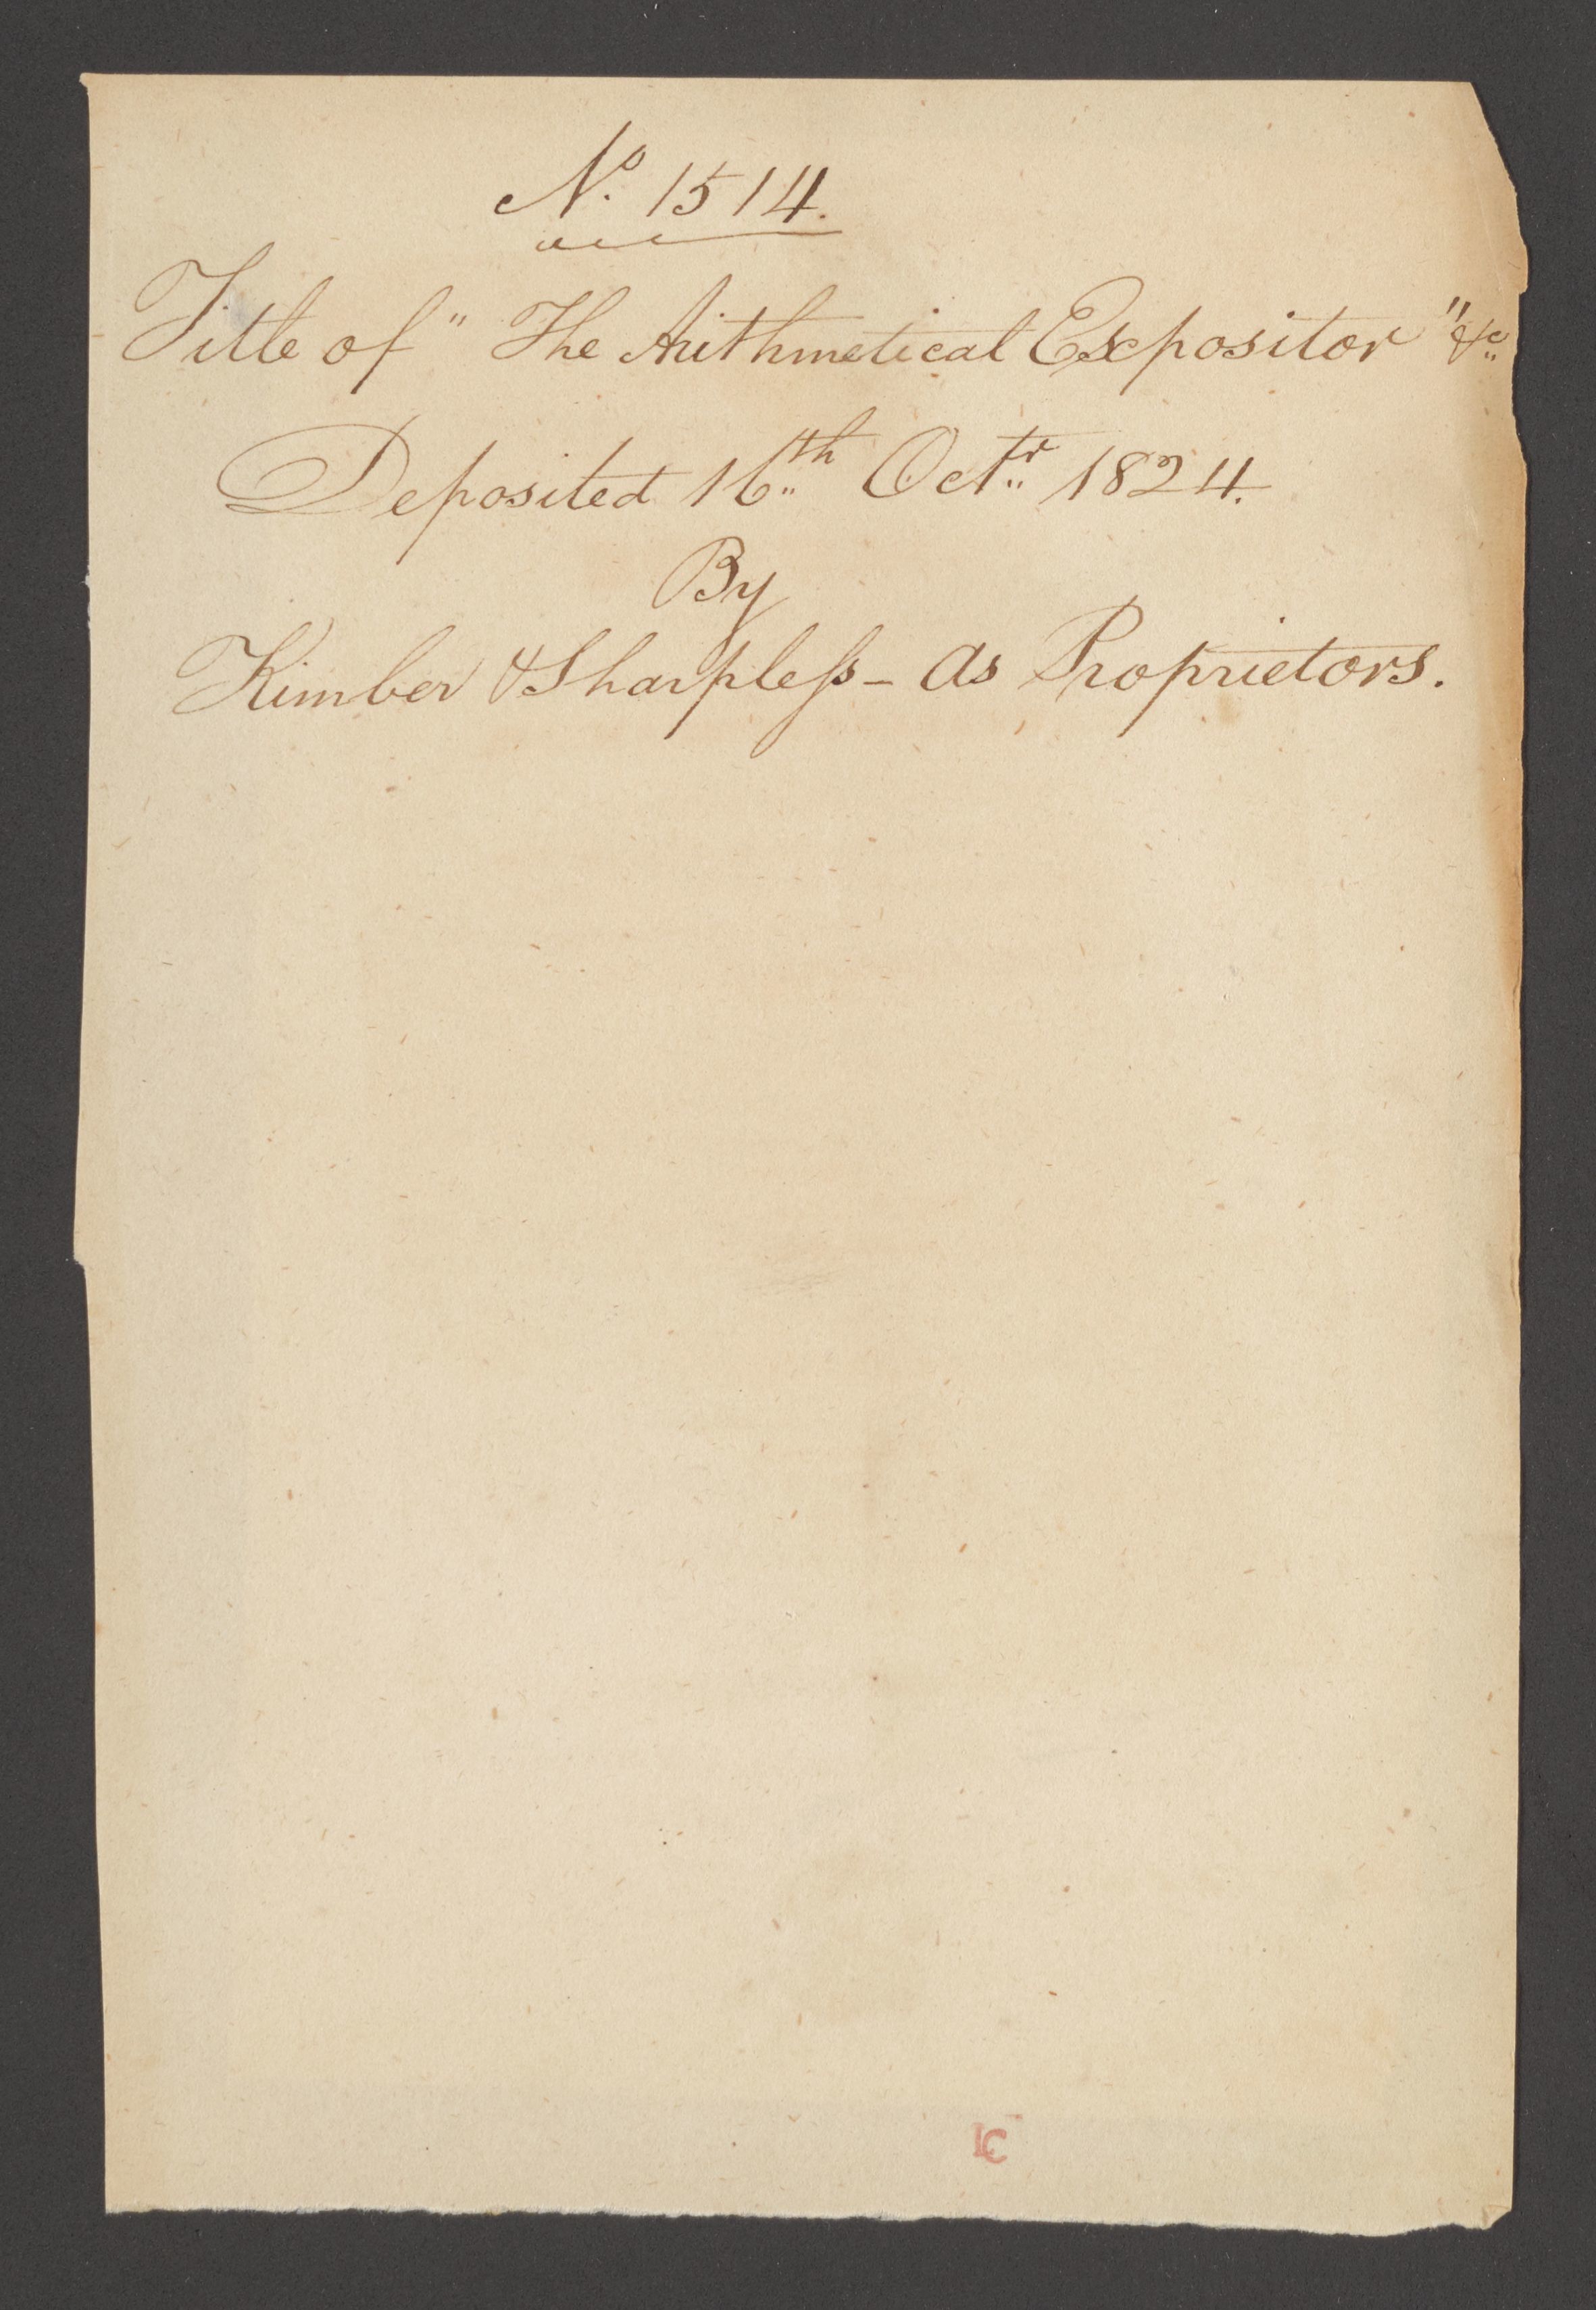 No. 1514.
Title of " The Arithmetical Expositor " &c.
Deposited 16th Octr 1824.
By
Kimber & Sharpleſs - As Proprietors.
LC